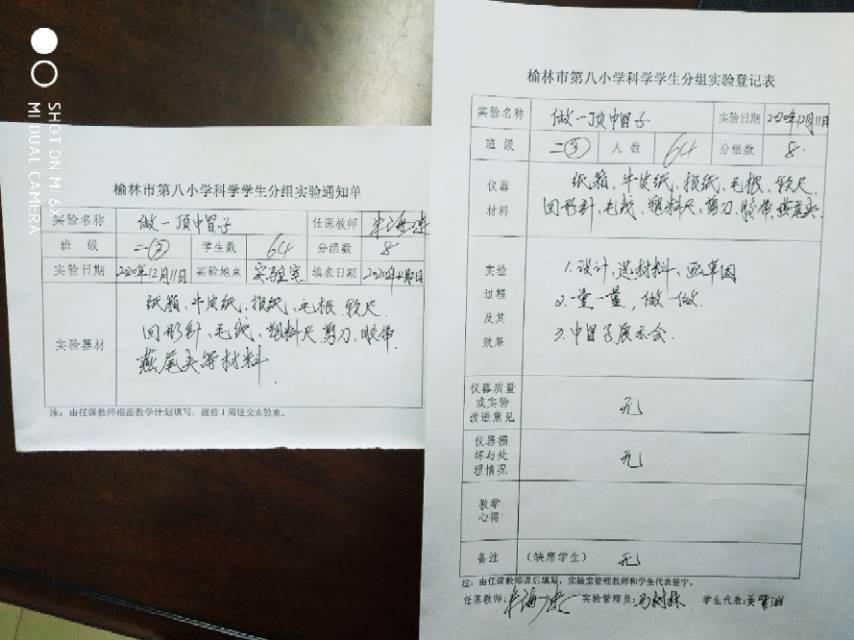 SHOT ON MI 6X
MI DUAL CAMERA
榆林市第八小学科学学生分组实验通知单
实验名称 做一顶帽子 任课教师
班 级 二(3) 学生数 64 分组数 8
实验日期 2020年12月11日 实验地点 实验室 填表日期
实验器材
纸箱、牛皮纸、报纸、毛根、软尺
回形针、毛线、塑料尺、剪刀、胶带、
燕尾夹等材料
注：由任课教师根据教学计划填写，提前1周送交实验室。
榆林市第八小学科学学生分组实验登记表
实验名称 做一顶帽子 实验日期 2020年12月11日
班 级 二(3) 人 数 64 分组数 8
仪器
材料
纸箱、牛皮纸、报纸、毛根、软尺
回形针、毛线、塑料尺、剪刀、胶带、燕尾夹
实验
过程
及其
效果
1.设计、选材料、画草图
2.一量一量，做一做.
3.帽子展示会.
仪器质量
或实验
改进意见
无
仪器损
坏与处
理情况
无
教学
心得
备注 (缺席学生) 无
注：由任课教师课后填写，实验室管理教师和学生代表签字。
任课教师: 实验管理员: 学生代表: